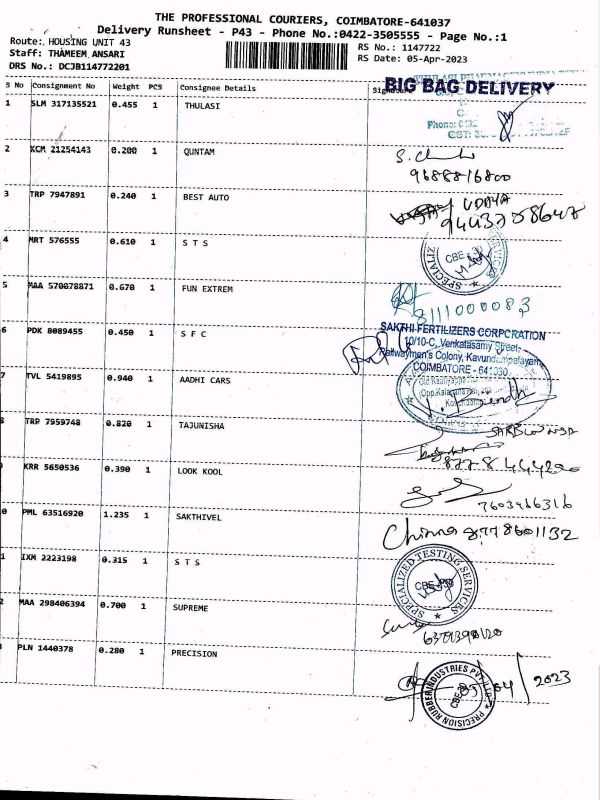 THE PROFESSIONAL COURIERS, COIMBATORE-641037
Delivery Runsheet - P43 - Phone No.:0422-3505555 - Page No.:1
Route: HOUSING UNIT 43
RS No.: 1147722
Staff: THAMEEM ANSARI
RS Date: 05-Apr-2023
DRS No.: DCJB114772201
S No Consignment No Weight PCS Consignee Details
BIG BAG DELIVERY
1 SLM 317135521 0.455 1 THULASI
Phone:
GST:
2 KCM 21254143 0.200 1 QUNTAM
9688816800
3 TRP 7947891 0.240 1 BEST AUTO
UDAYA
4 MRT 576555 0.610 1 S T S
CBE
5 MAA 570078871 0.670 1 FUN EXTREM
8111000083
6 PDK 8089455 0.450 1 S F C
SAKTHI FERTILIZERS CORPORATION
10/10-C, Venkatasamy Street,
Railwaymen's Colony, Kavundampalayam
COIMBATORE - 641030
7 TVL 5419895 0.940 1 AADHI CARS
8 TRP 7959748 0.820 1 TAJUNISHA
KRR 5650536 0.390 1 LOOK KOOL
7603966316
0 PML 63516920 1.235 1 SAKTHIVEL
Chinna 8778601132
1 IXM 2223198 0.315 1 S T S
SPECIALIZED TESTING SERVICES
2 MAA 298406394 0.700 1 SUPREME
PLN 1440378 0.280 1 PRECISION
PRECISION RUBBER INDUSTRIES PVT. LTD.
2023